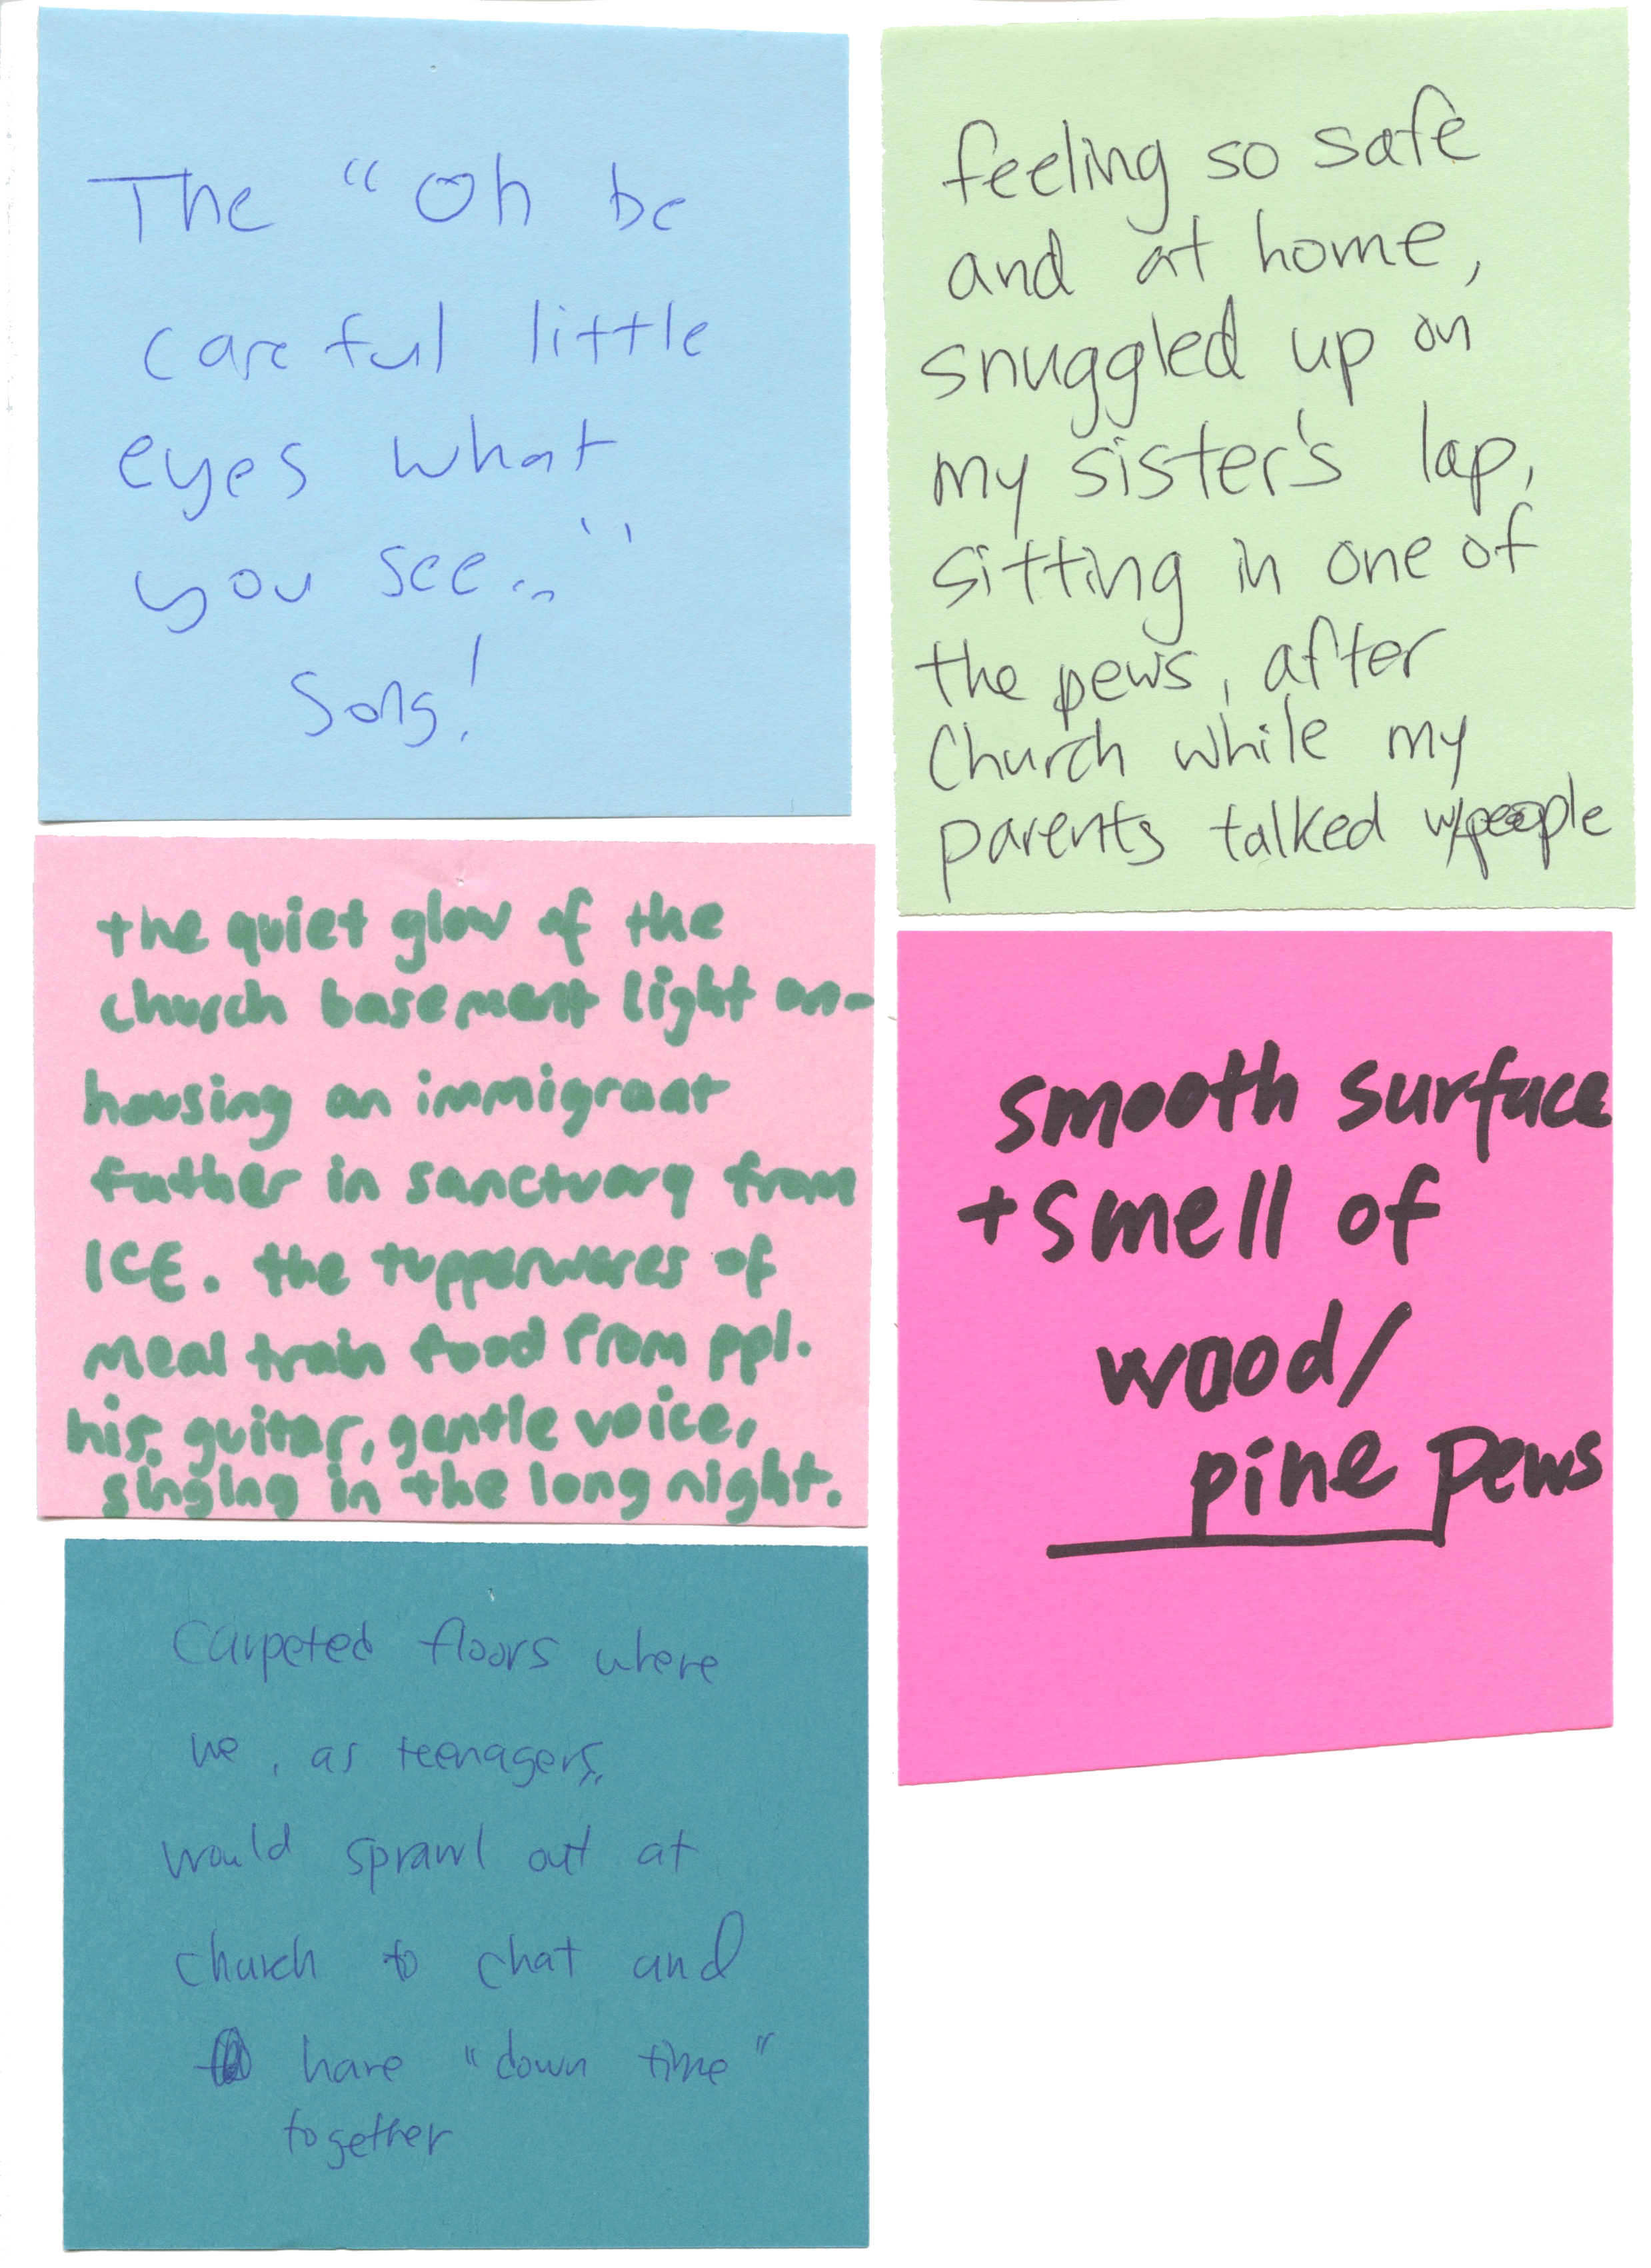 The "Oh be
careful little
eyes what
you see..."
Song!
feeling so safe
and at home,
snuggled up on
my sister's lap,
sitting in one of
the pews, after
Church while my
parents talked w/people
the quiet glow of the
church basement light on-
housing an immigrant
father in sanctuary from
ICE. the tupperwares of
meal train food from ppl.
his guitar, gentle voice,
singing in the long night.
smooth surface
+ smell of
wood/
pine pews
Carpeted floors where
we, as teenagers,
would sprawl out at
church to chat and
have "down time"
together